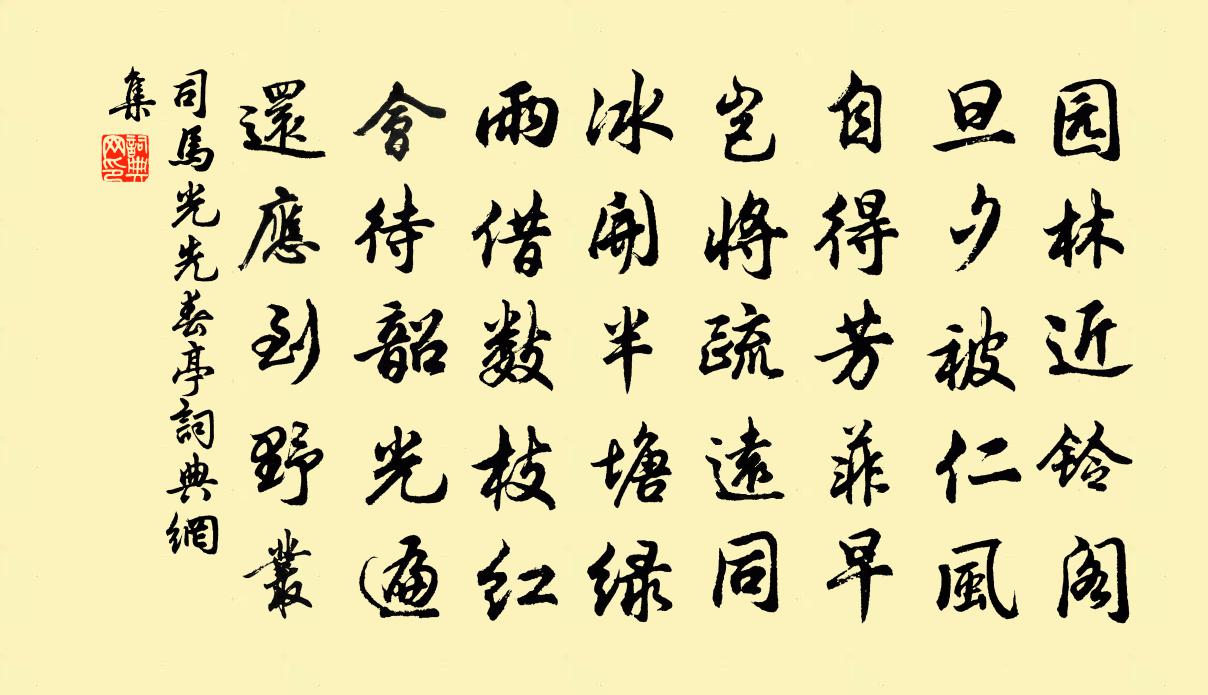 园林近铃阁
旦夕被仁風
自得芳菲早
岂將疏遠同
冰開半塘绿
雨借数枝红
會待韶光遍
還應到野叢
司馬光先春亭詞典網
集
詞典
网印